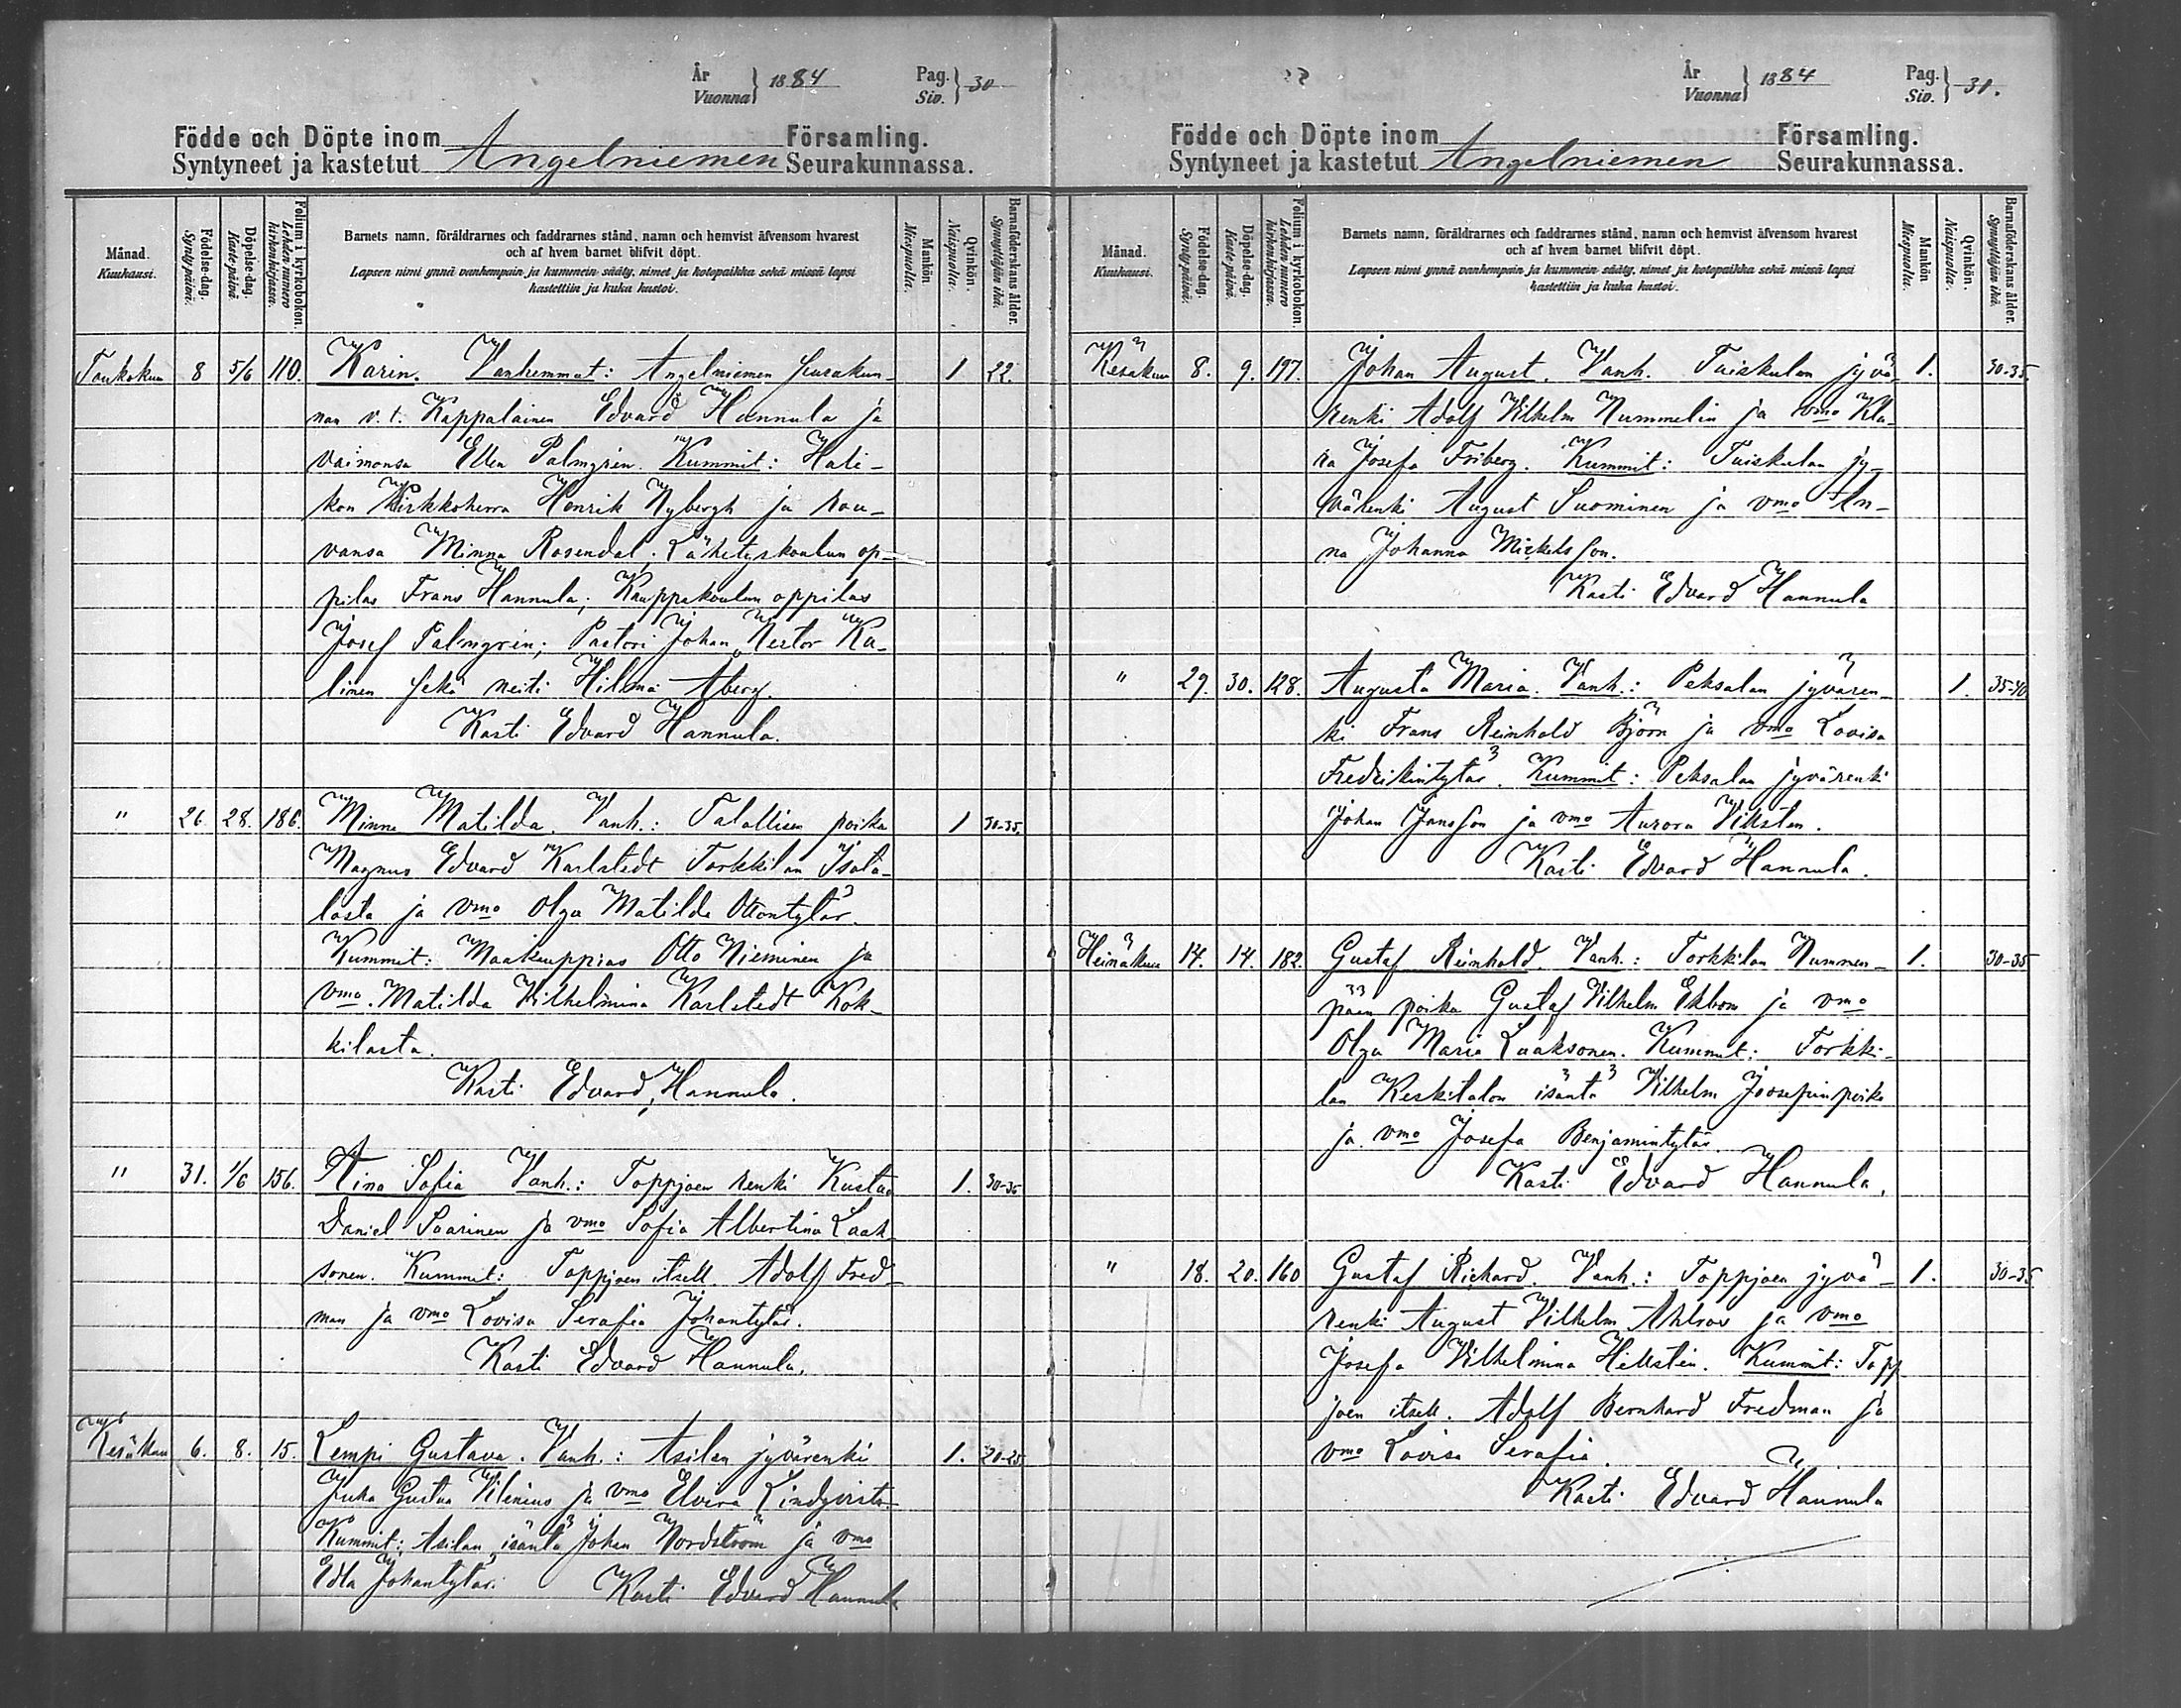 År
Vuonna } 1884
Pag.
Siv. } 30
Födde och Döpte inom Församling.
Syntyneet ja kastetut Angelniemen Seurakunnassa.
Månad. Kuukausi.
Födelse-dag. Syntypäivä.
Döpelse-dag. Kaste-päivä.
Folium i kyrkoboken. Lehden numero kirkonkirjassa.
Barnets namn, föräldrarnes och faddrarnes stånd, namn och hemvist äfvensom hvarest
och af hvem barnet blifvit döpt.
Lapsen nimi ynnä vanhempain ja kummein sääty, nimet ja kotopaikka sekä missä lapsi
kastettiin ja kuka kastoi.
Mankön. Miespuolia.
Qvinkön. Naispuolia.
Barnaföderskans ålder. Synnyttäjän ikä.
Toukokuu 8 5/6 110. Karin. Vanhemmat: Angelniemen seurakun- 1 22.
nan v. t. Kappalainen Edvard Hannula ja
vaimonsa Ellen Palmgren. Kummit: Hali-
kon Kirkkoherra Henrik Nybergh ja rou-
vansa Minna Rosendal; Lähetyskoulun op-
pilas Frans Hannula; Kauppakoulun oppilas
Josef Palmgren; Pastori Johan Nestor Ka-
linen sekä neiti Hilma Åberg.
Kasti Edvard Hannula.
" 26. 28. 186. Minna Matilda. Vanh.: Talollisen poika 1 30-35.
Magnus Edvard Karlstedt Torkkilan Isota-
losta ja vmo Olga Matilda Ottontytär.
Kummit: Maakauppias Otto Nieminen ja
vmo. Matilda Vilhelmina Karlstedt Kok-
kilasta.
Kasti Edvard Hannula.
" 31. 1/6 156. Aina Sofia Vanh.: Toppjoen renki Kustaa 1. 30-35
Daniel Saarinen ja vmo Sofia Albertina Laak-
sonen. Kummit: Toppjoen itsell. Adolf Fred-
man ja vmo Lovisa Serafia Johantytär.
Kasti Edvard Hannula.
Kesäkuu 6. 8. 15. Lempi Gustava. Vanh.: Asilan jyvärenki 1. 20-25
Juha Gustaa Vilenius ja vmo Elvira Lindqvist.
Kummit: Asilan isäntä Johan Nordström ja vmo
Edla Johantytär. Kasti Edvard Hannula
År
Vuonna } 1884
Pag.
Siv. } 31.
Födde och Döpte inom Församling.
Syntyneet ja kastetut Angelniemen Seurakunnassa.
Månad. Kuukausi.
Födelse-dag. Syntypäivä.
Döpelse-dag. Kaste-päivä.
Folium i kyrkoboken. Lehden numero kirkonkirjassa.
Barnets namn, föräldrarnes och faddrarnes stånd, namn och hemvist äfvensom hvarest
och af hvem barnet blifvit döpt.
Lapsen nimi ynnä vanhempain ja kummein sääty, nimet ja kotopaikka sekä missä lapsi
kastettiin ja kuka kastoi.
Mankön Miespuolia.
Qvinkön. Naispuolia.
Barnaföderskans ålder. Synnyttäjän ikä.
Kesäkuu 8. 9. 197. Johan August. Vanh. Tuiskulan jyvä- 1. 30-35.
renki Adolf Vilhelm Nummelin ja vmo Kla-
ra Josefa Friberg. Kummit: Tuiskulan jy-
värenki August Suominen ja vmo An-
na Johanna Mickelsson.
Kasti Edvard Hannula
" 29. 30. 128. Augusta Maria. Vanh.: Peksalan jyvären- 1. 35-40
ki Frans Reinhold Björn ja vmo Lovisa
Fredrikintytär. Kummit: Peksalan jyvärenki
Johan Jansson ja vmo Aurora Villsten.
Kasti Edvard Hannula.
Heinäkuu 14. 14. 182. Gustaf Reinhold. Vanh.: Torkkilan Nummen- 1. 30-35
pään poika Gustaf Vilhelm Ekbom ja vmo
Olga Maria Laaksonen. Kummit: Torkki-
lan Keskitalon isäntä Vilhelm Joosepinpoika
ja vmo Josefa Benjamintytär.
Kasti Edvard Hannula.
" 18. 20. 160 Gustaf Richard. Vanh.: Toppjoen jyvä- 1. 30-35
renki August Vilhelm Ahlroos ja vmo
Josefa Vilhelmina Hellstén. Kummit: Topp
joen itsell. Adolf Bernhard Fredman ja
vmo Lovisa Serafia.
Kasti Edvard Hannula